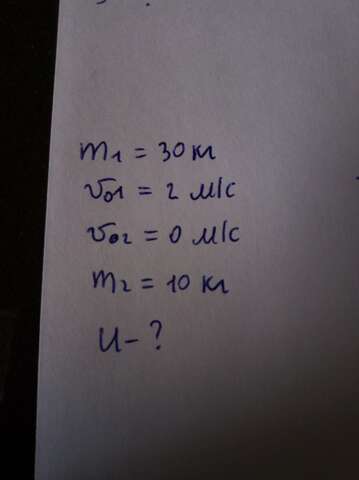 m₁ = 30 кг
v₀₁ = 2 м/с
v₀₂ = 0 м/с
m₂ = 10 кг
u - ?